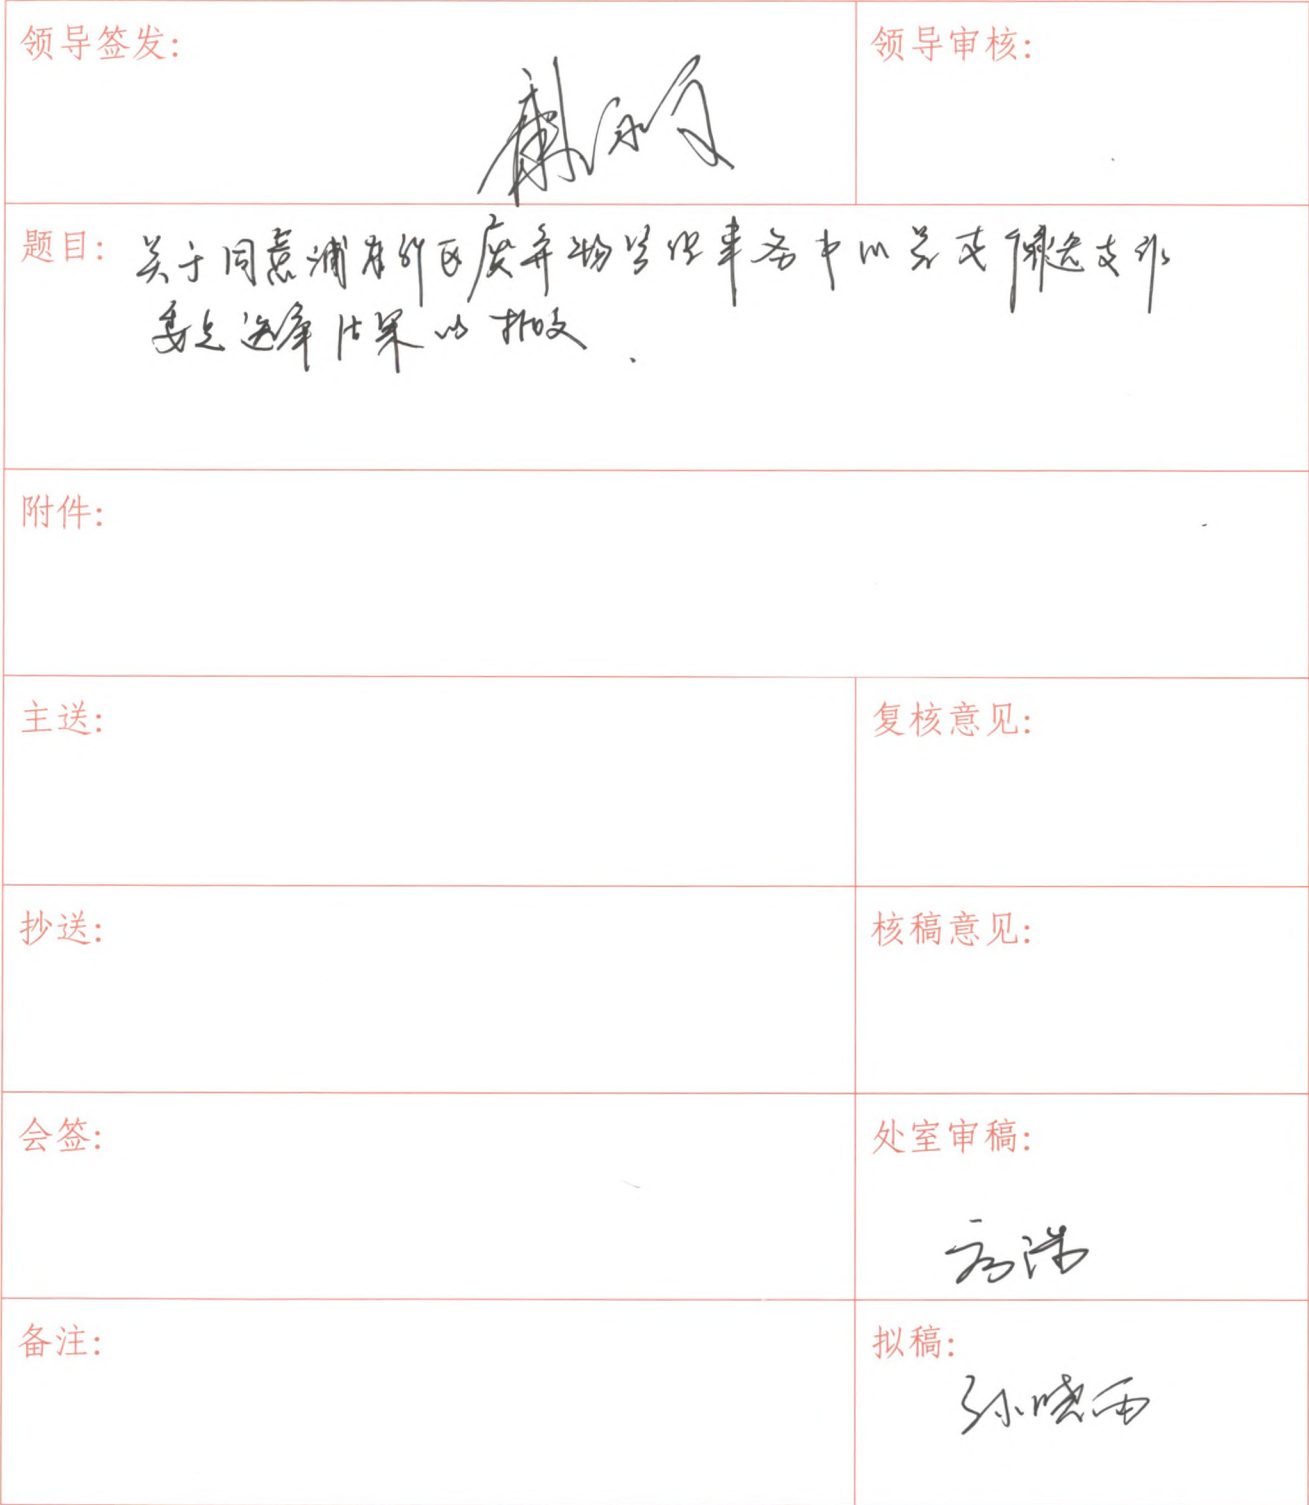 领导签发:
领导审核:
题目: 关于同意浦东新区废弃物管理事务中心总支增选支部
委员选举结果的批复.
附件:
主送:
复核意见:
抄送:
核稿意见:
会签:
处室审稿:
备注:
拟稿:
孙晓雨